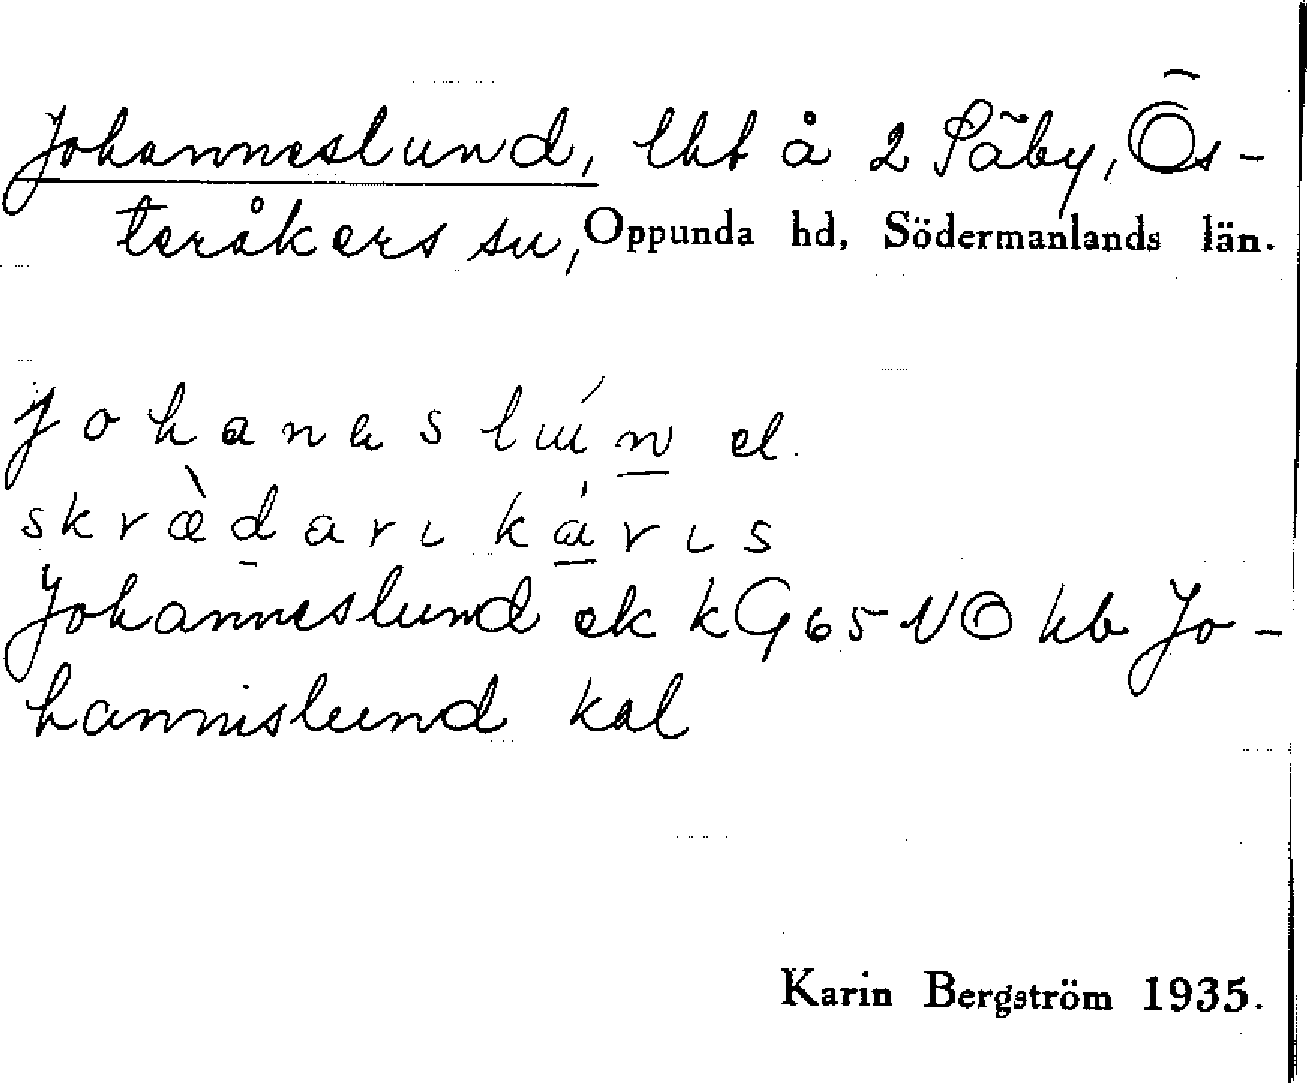 Johanneslund, lht å 2 Säby, Ös-
teråkers sn, Oppunda hd, Södermanlands län.
johanaslún el.
skræ̀darι kárιs
Johanneslund ek kG65 NO hb Jo-
hannislund kal
Karin Bergström 1935.